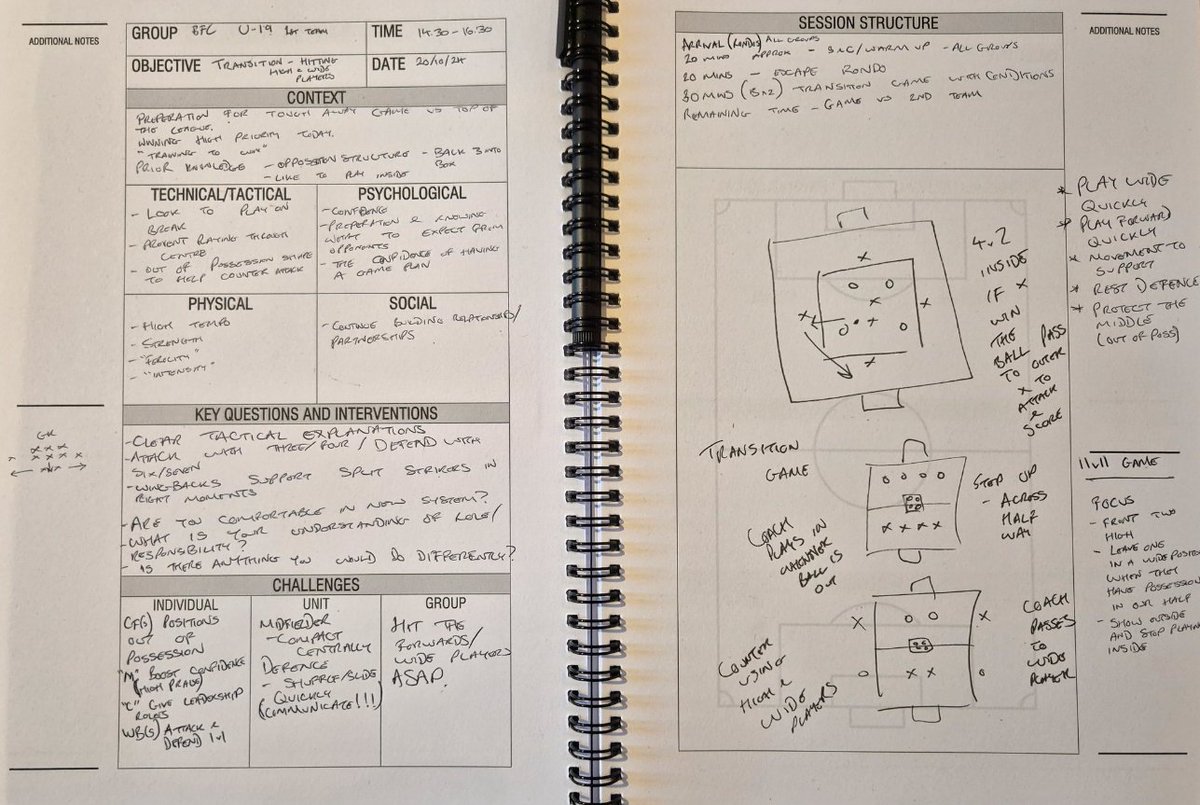 ADDITIONAL NOTES
GROUP BFC U-19 1st TEAM
TIME 14.30 - 16.30
OBJECTIVE TRANSITION - HITTING
HIGH & WIDE
PLAYERS
DATE 20/10/24
CONTEXT
PREPERATION FOR TOUGH AWAY GAME VS TOP OF
THE LEAGUE.
WINNING HIGH PRIORITY TODAY.
"TRAINING TO WIN"
PRIOR KNOWLEDGE - OPPOSITION STRUCTURE - BACK 3 INTO
BOX
- LIKE TO PLAY INSIDE
TECHNICAL/TACTICAL
- LOOK TO PLAY ON
BREAK
- PREVENT PLAYING THROUGH
CENTRE
- OUT OF POSSESSION SHAPE
TO HELP COUNTER ATTACK
PSYCHOLOGICAL
- CONFIDENCE
- PREPERATION & KNOWING
WHAT TO EXPECT FROM
OPPONENTS
- THE CONFIDENCE OF HAVING
A GAME PLAN
PHYSICAL
- HIGH TEMPO
- STRENGTH
- "FEROCITY"
- "INTENSITY"
SOCIAL
- CONTINUE BUILDING RELATIONSHIPS/
PARTNERSHIPS
KEY QUESTIONS AND INTERVENTIONS
- CLEAR TACTICAL EXPLANATIONS
- ATTACK WITH THREE/FOUR / DEFEND WITH
SIX/SEVEN
- WING-BACKS SUPPORT SPLIT STRIKERS IN
RIGHT MOMENTS
- ARE YOU COMFORTABLE IN NEW SYSTEM?
- WHAT IS YOUR UNDERSTANDING OF ROLE/
RESPONSIBILITY?
- IS THERE ANYTHING YOU WOULD DO DIFFERENTLY?
GK
x x x
x x x x x
CHALLENGES
INDIVIDUAL
CF(S) POSITIONS
OUT OF
POSSESSION
"M" BOOST CONFIDENCE
(HIGH PRAISE)
"C" GIVE LEADERSHIP
ROLES
WB(S) ATTACK &
DEFEND 1v1
UNIT
MIDFIELDER
- COMPACT
CENTRALLY
DEFENCE
- SHUFFLE/SLIDE
QUICKLY
(COMMUNICATE!!!)
GROUP
HIT THE
FORWARDS/
WIDE PLAYERS
ASAP.
SESSION STRUCTURE
ARRIVAL (RONDOS) ALL GROUPS
20 MINS APPROX - S&C/WARM UP - ALL GROUPS
20 MINS - ESCAPE RONDO
30 MINS (15x2) TRANSITION GAME WITH CONDITIONS
REMAINING TIME - GAME VS 2ND TEAM
4v2
INSIDE
IF X
WIN
THE
BALL PASS
TO OUTER
X TO
ATTACK
&
SCORE
TRANSITION
GAME
COACH
PLAYS IN
WHENEVER
BALL IS
OUT
STEP UP
- ACROSS
HALF
WAY
COUNTER
USING
HIGH &
WIDE PLAYERS
COACH
PASSES
TO
WIDE
PLAYER
ADDITIONAL NOTES
* PLAY WIDE
QUICKLY
* PLAY FORWARD
QUICKLY
* MOVEMENT TO
SUPPORT
* REST DEFENCE
* PROTECT THE
MIDDLE
(OUT OF POSS)
11v11 GAME
FOCUS
- FRONT TWO
HIGH
- LEAVE ONE
IN A WIDE POSITION
WHEN THEY
HAVE POSSESSION
IN OUR HALF
- SHOW OUTSIDE
AND STOP PLAYING
INSIDE